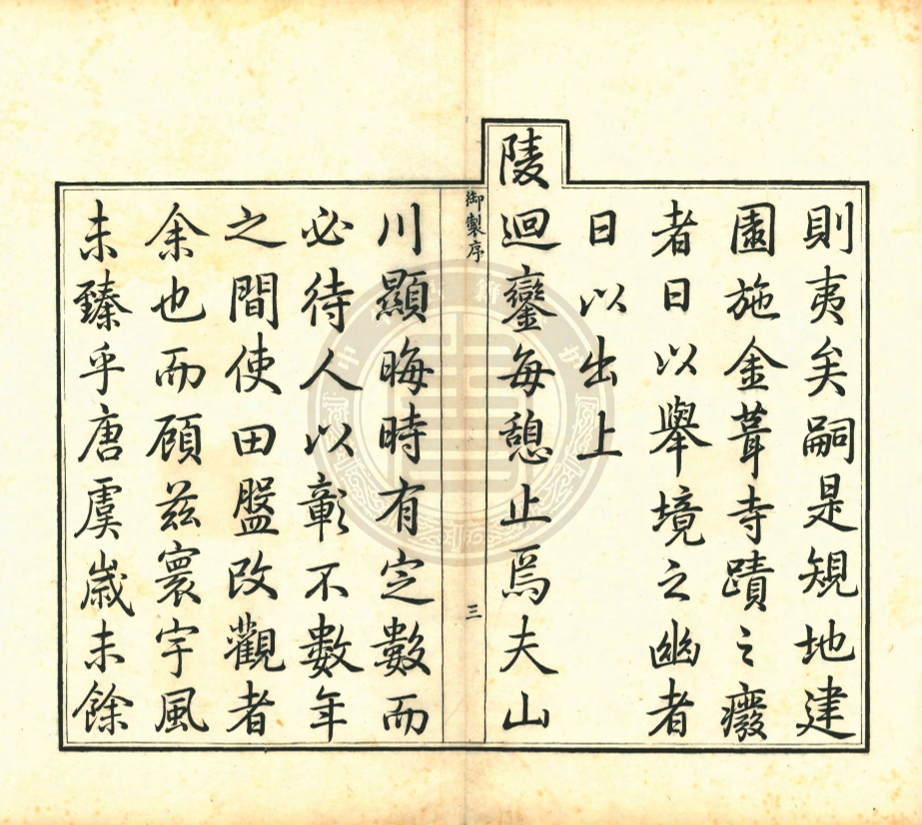 則夷矣嗣是規地建
園施金葺寺蹟之癈
者日以舉境之幽者
日以出上
陵迴鑾每憩止焉夫山
御製序
三
川顯晦時有定數而
必待人以彰不數年
之間使田盤改觀者
余也而顧茲寰宇風
未臻乎唐虞歲未餘